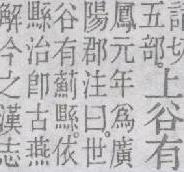 詣切
五部。
上谷有
鳳元年爲廣
陽郡注曰。世
谷有薊縣。依
縣治卽古燕
解今之漢志